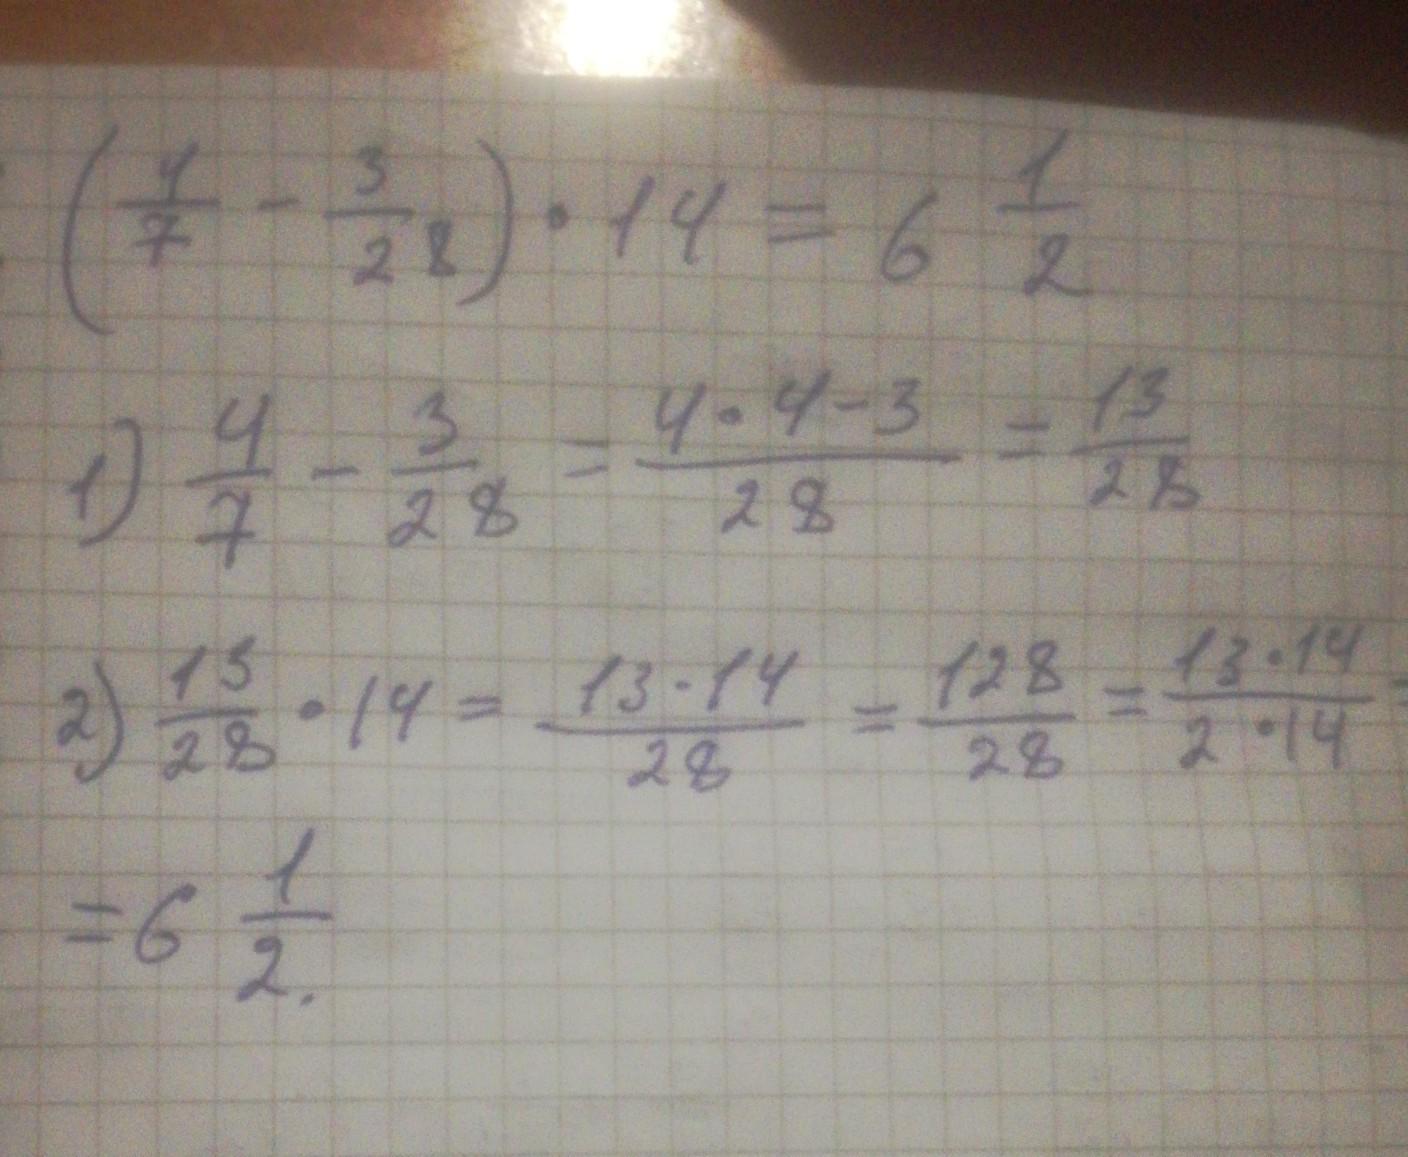 (4/7 - 3/28) • 14 = 6 1/2
1) 4/7 - 3/28 = (4 • 4 - 3)/28 = 13/28
2) 13/28 • 14 = (13 • 14)/28 = 128/28 = (13 • 14)/(2 • 14) =
= 6 1/2.